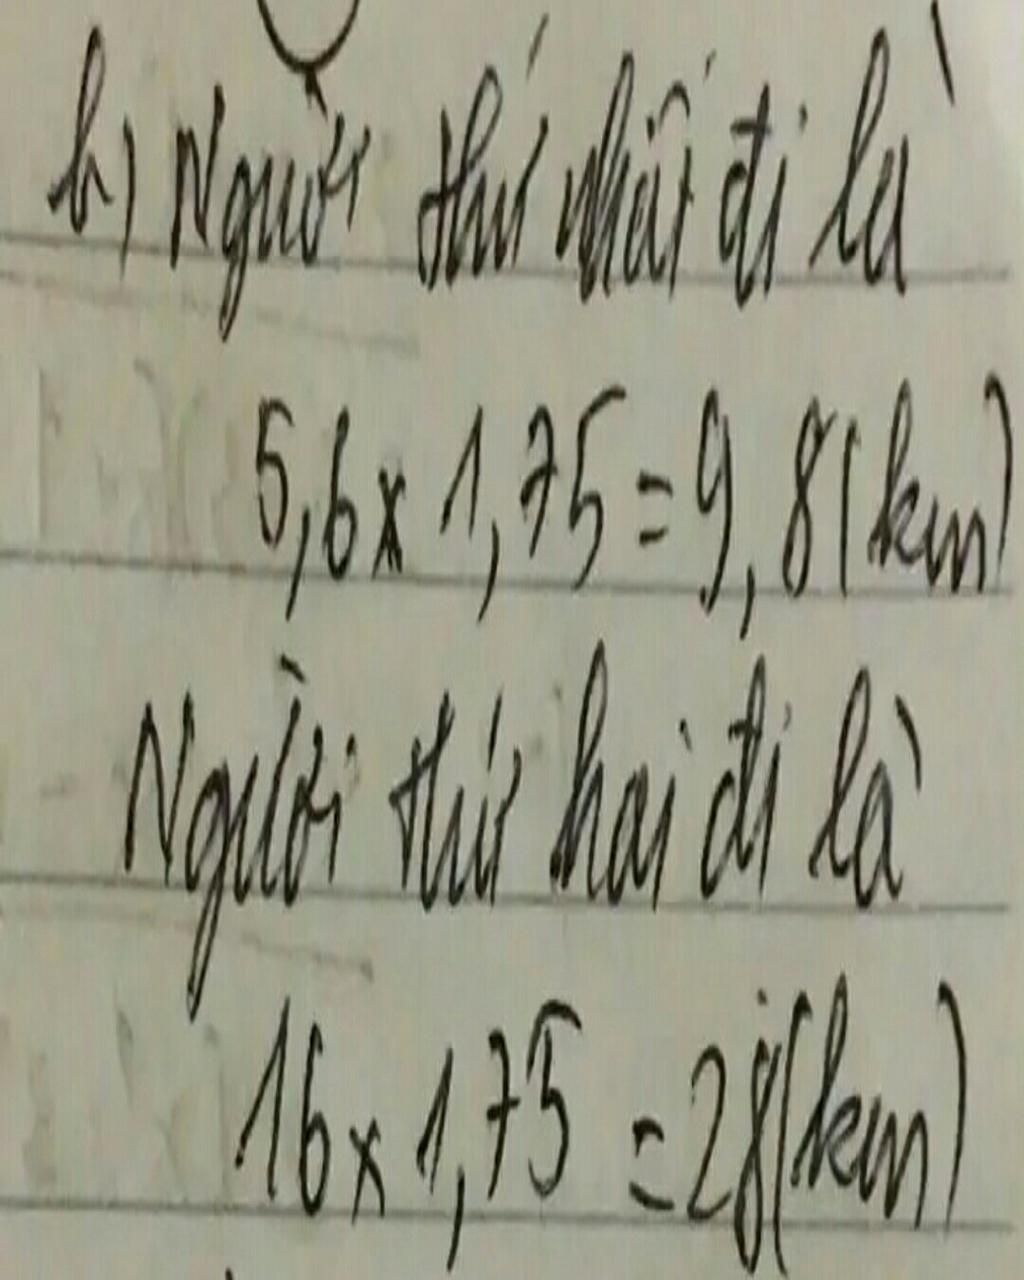 b) Người thứ nhất đi là
5,6 x 1,75 = 9,8 (km)
Người thứ hai đi là
16 x 1,75 = 28 (km)